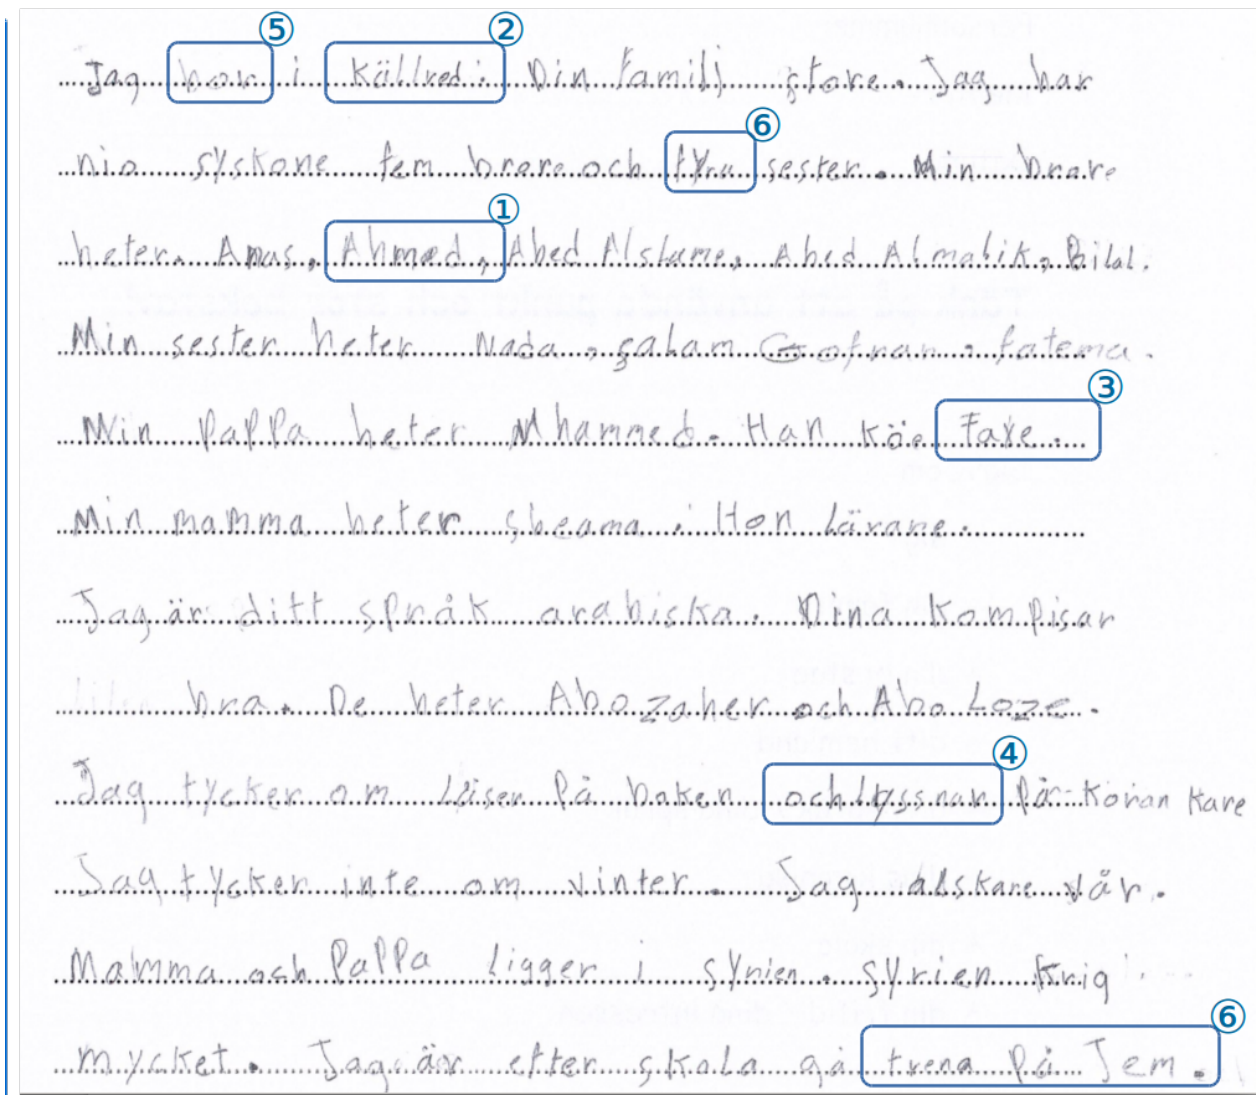 Jag bor i Källred. Din familj store. Jag har
nio syskone fem brore och fyra sester. Min brore
heter. Anas, Ahmed, Abed Alslame, Abed Almalik, Bilal.
Min sester heter Nada, salam Gofran, fatema.
Min pappa heter Mhammed. Han kör Taxe.
Min mamma heter sheama. Hon Lärare.
Jag är ditt språk arabiska. Dina kompisar
bra. De heter Abozaher och Abo Loze.
Jag tycker om Läser på boken och lyssnar på koran kare
Jag tycker inte om vinter. Jag älskare vår.
Mamma och Pappa Ligger i syrien. syrien krig
mycket. Jag är efter skola gå trena på Jem.
⑤ ②
⑥
①
③
④
⑥